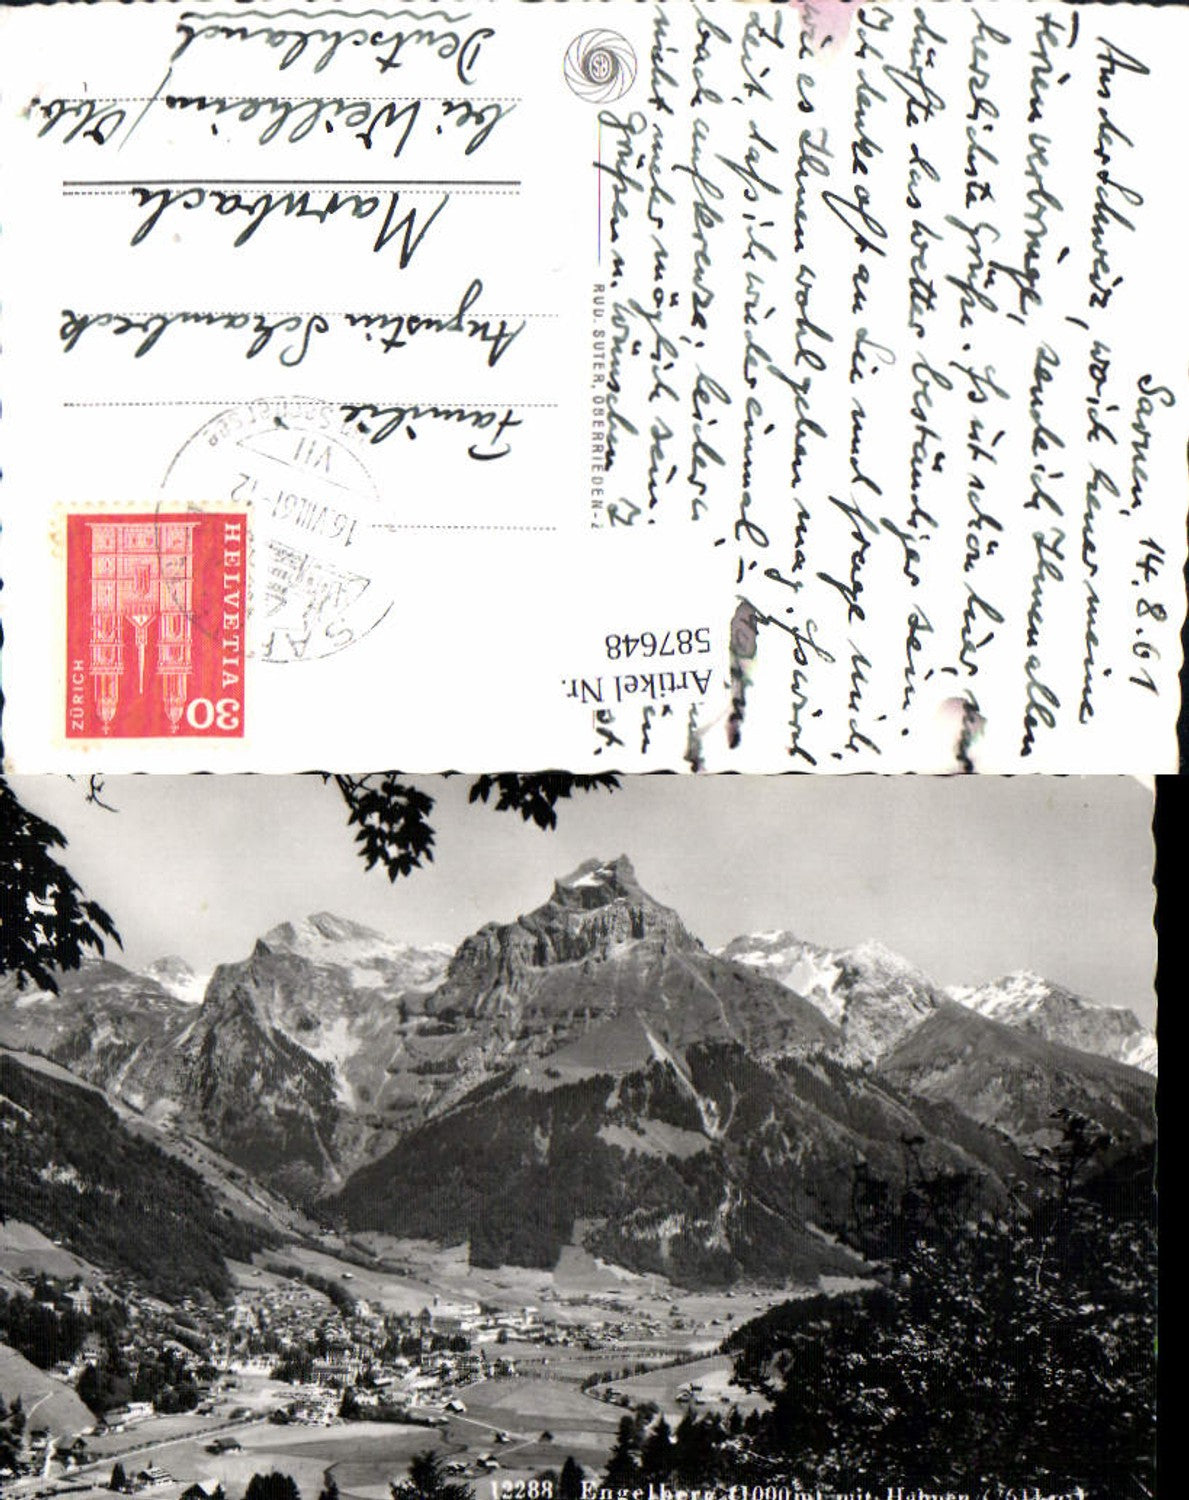 Sarnen, 14.8.61
Aus der Schweiz, wo ich heuer meine
Ferien verbringe, sende ich Ihnen allen
herzlichste Grüße. Es ist schön hier,
dürfte das Wetter beständiger sein.
Ich denke oft an Sie und frage mich,
wie es Ihnen wohl gehen mag. Es wird
Zeit, daß ich wieder einmal in
bach aufkreuze, leider
nicht mehr möglich sein.
Grüßen u. wünschen
st.
RUD. SUTER, OBERRIEDEN-Z
SB
Familie
Augustin Schambeck
Marnbach
bei Weilheim/Obb.
Deutschland
HELVETIA
30
ZÜRICH
16.VIII.61-12
VII
SAR
Artikel Nr.
587648
12288 Engelberg (1000m) mit Hahnen (2611m)